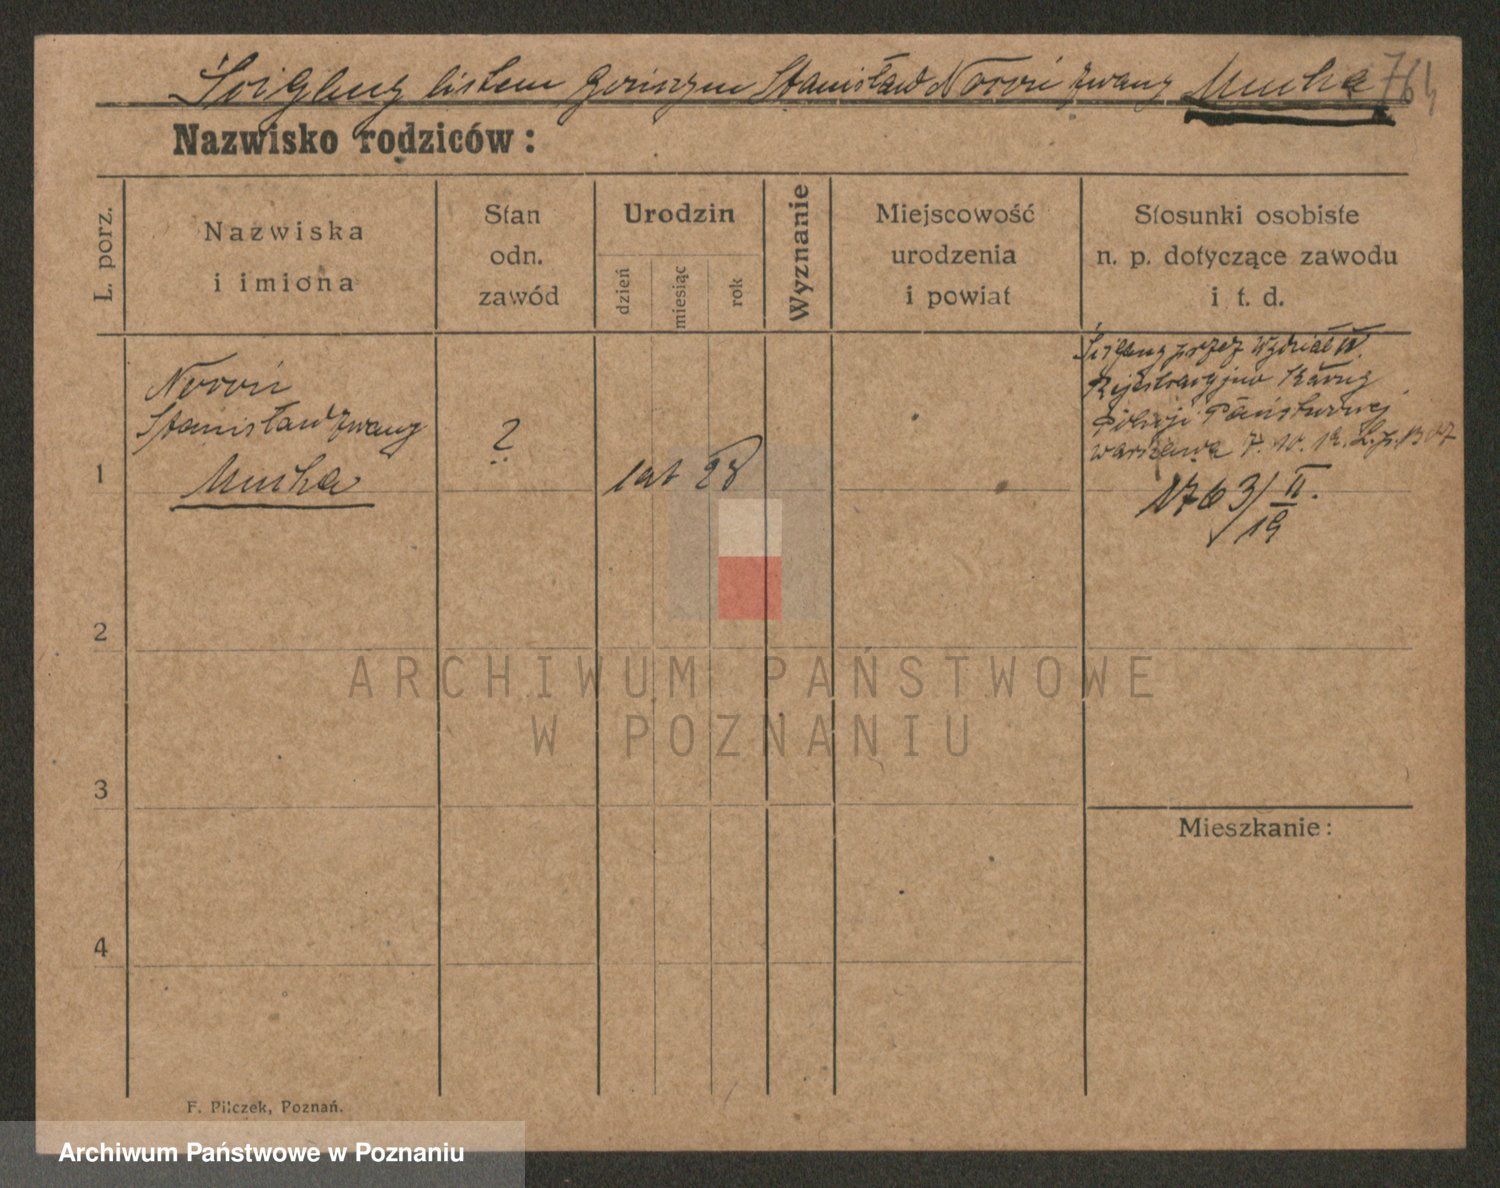 Ścigany listem gończym Stanisław zwany Mucha 764
Nazwisko rodziców:
L. porz.
Nazwiska
i imiona
Stan
odn.
zawód
Urodzin
dzień
miesiąc
rok
Wyznanie
Miejscowość
urodzenia
i powiat
Stosunki osobiste
n. p. dotyczące zawodu
i t. d.
1
Stanisław zwany
Mucha
?
lat 28
Ścigany przez Wydział IV.
Rejestracyjno Karny
Policji Państwowej
Warszawa
1763/II.
19
2
3
Mieszkanie:
4
F. Pilczek, Poznań.
ARCHIWUM PAŃSTWOWE
W POZNANIU
Archiwum Państwowe w Poznaniu